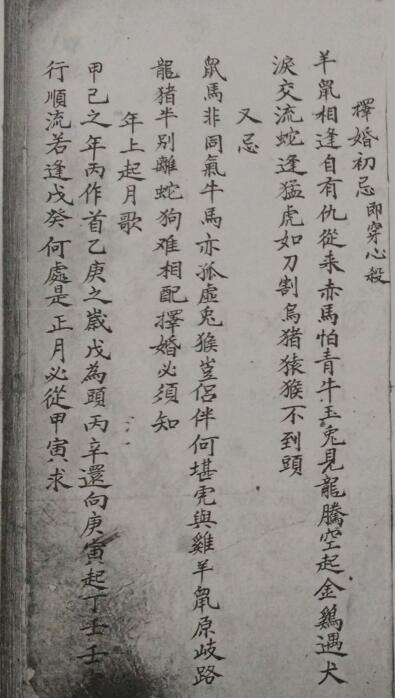 擇婚初忌即穿心殺
羊鼠相逢自有仇從来赤馬怕青牛玉兎見龍騰空起金鷄遇犬
淚交流蛇逢猛虎如刀割烏猪猿猴不到頭
又忌
鼠馬非同氣牛馬亦孤虛兎猴豈侶伴何堪虎與雞羊鼠原歧路
龍猪半別離蛇狗难相配擇婚必須知
年上起月歌
甲己之年丙作首乙庚之歲戊為頭丙辛還向庚寅起丁壬壬
行順流若逢戊癸何處是正月必從甲寅求